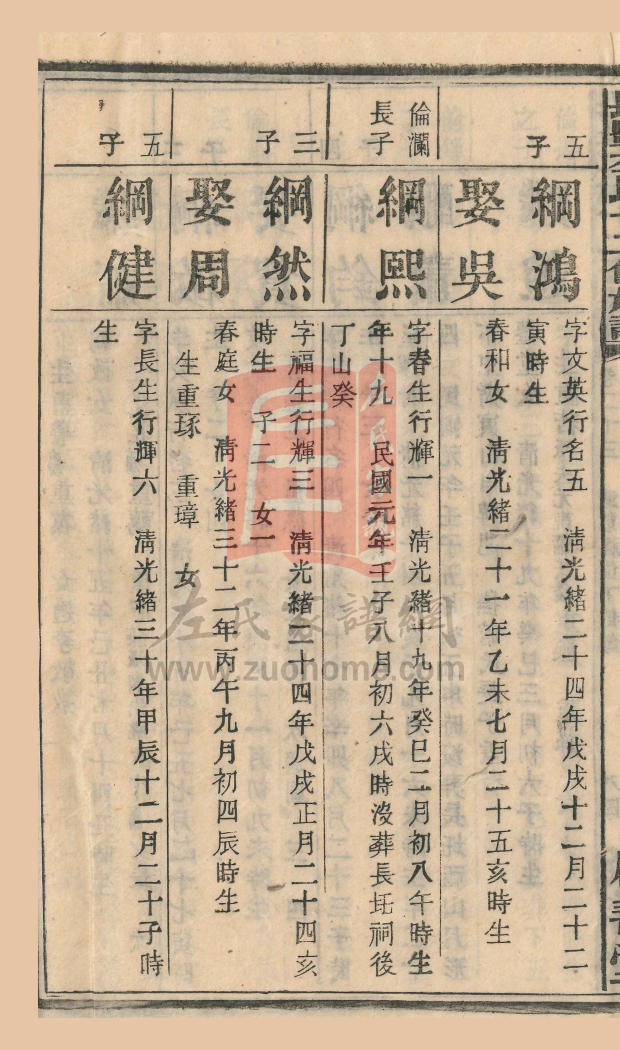 五子
綱鴻
字文英行名五 清光緒二十四年戊戌十二月二十二
寅時生
娶吳
春和女 清光緒二十一年乙未七月二十五亥時生
倫瀾長子
綱熙
字春生行輝一 清光緒十九年癸巳二月初八午時生
年十九 民國元年壬子八月初六戌時沒葬長坵祠後
丁山癸
三子
綱然
字福生行輝三 清光緒二十四年戊戌正月二十四亥
時生 子二 女一
娶周
春庭女 清光緒三十二年丙午九月初四辰時生
生重琢 重璋 女
五子
綱健
字長生行輝六 清光緒三十年甲辰十二月二十子時
生
左氏家譜網
www.zuohome.com